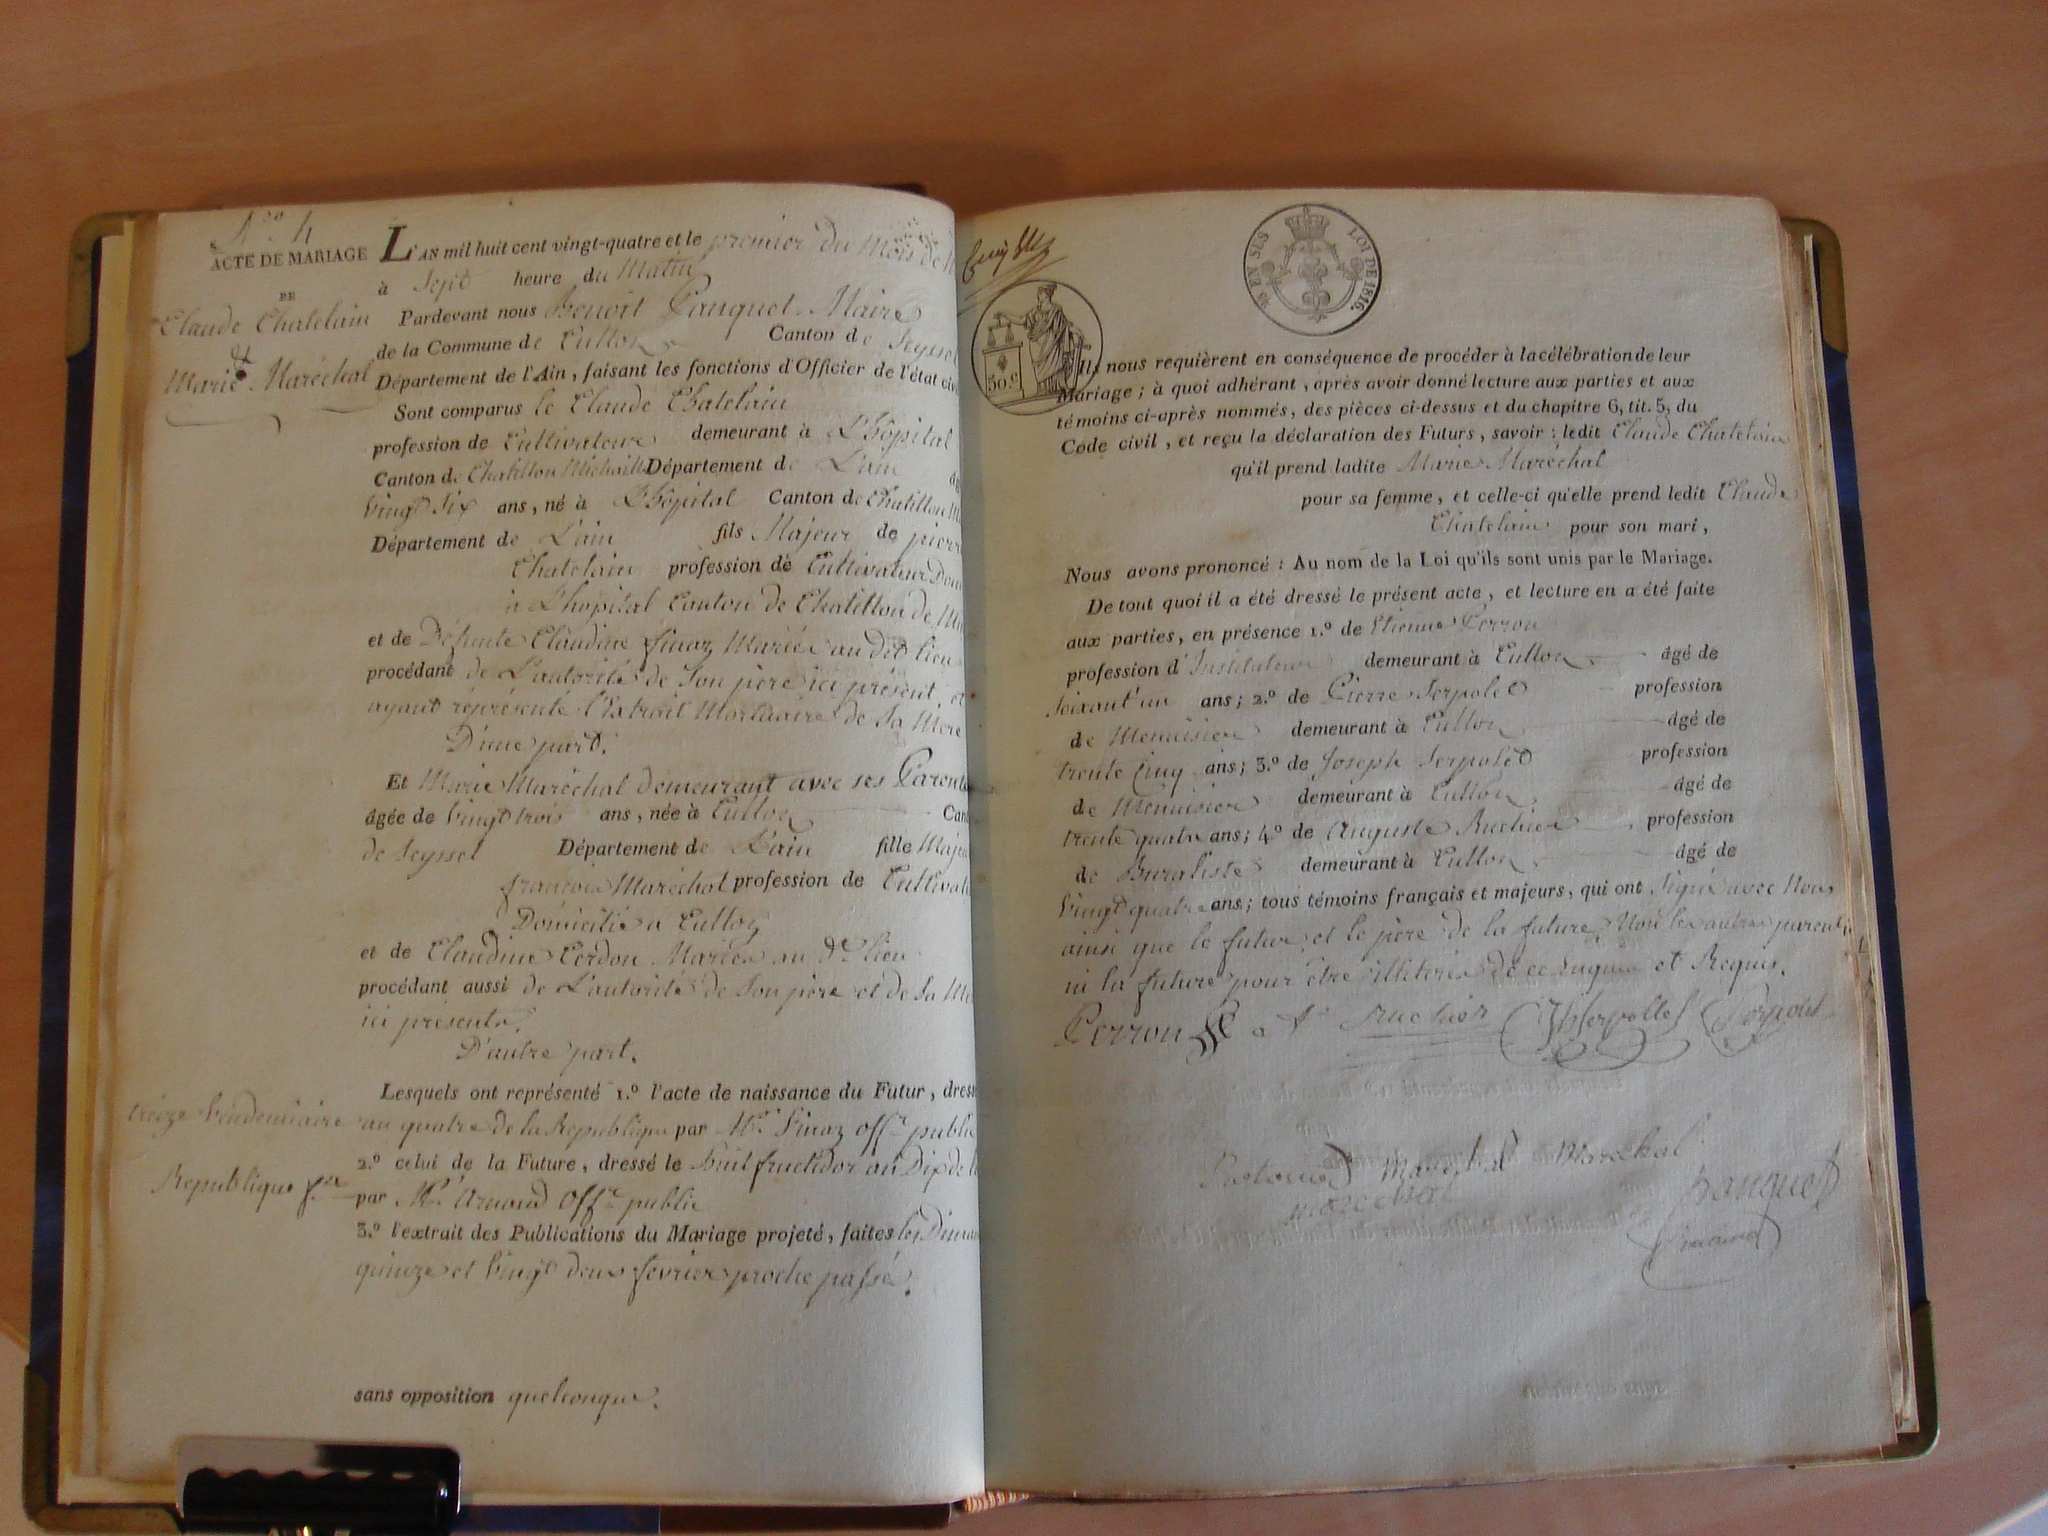 N.º 4
ACTE DE MARIAGE
DE
Claude Chatelain
et
Marie Maréchal
L'AN mil huit cent vingt-quatre et le premier du Mois de
à Sept heure du Matin
Pardevant nous Benoit Panquet Maire
de la Commune de Culloz Canton de Seyssel
Département de l'Ain, faisant les fonctions d'Officier de l'état civ
Sont comparus le Claude Chatelain
profession de Cultivateur demeurant à L'hôpital
Canton de Chatillon Michaille Département de L'ain
vingt Six ans, né à L'hôpital Canton de Chatillon
Département de L'ain fils Majeur de pierre
Chatelain profession de Cultivateur
à L'hopital Canton de Chatillon de
et de Défunte Claudine finaz Mariés au dit lieu
procédant de L'autorité de Son père ici présent, et
ayant représenté l'Extrait Mortuaire de Sa Mere
D'une part.
Et Marie Maréchal demeurant avec ses Parents
âgée de vingt trois ans, née à Culloz Cant
de Seyssel Département de L'ain fille Majeu
françois Maréchal profession de Cultivat
Domicilié a Culloz
et de Claudine Cerdon Mariés au dt lieu
procédant aussi de L'autorité de Son père et de Sa Me
ici presents.
D'autre part.
Lesquels ont représenté 1.º l'acte de naissance du Futur, dres
treize Vendemiaire an quatre de la Republique par Mr finaz Offr public
2.º celui de la Future, dressé le huit fructidor an Dix de la
Republique fse par Mr Arnaud Offr public
3.º l'extrait des Publications du Mariage projeté, faites les Diman
quinze et vingt deux fevrier proche passé.
sans opposition quelconque.
EN SUS LOI DE 1816.
50.c
Ils nous requièrent en conséquence de procéder à la célébration de leur
Mariage ; à quoi adhérant, après avoir donné lecture aux parties et aux
témoins ci-après nommés, des pièces ci-dessus et du chapitre 6, tit. 5, du
Code civil, et reçu la déclaration des Futurs, savoir : ledit Claude Chatelain
qu'il prend ladite Marie Maréchal
pour sa femme, et celle-ci qu'elle prend ledit Claude
Chatelain pour son mari,
Nous avons prononcé : Au nom de la Loi qu'ils sont unis par le Mariage.
De tout quoi il a été dressé le présent acte, et lecture en a été faite
aux parties, en présence 1.º de Etienne Perron
profession d'Instituteur demeurant à Culloz âgé de
soixant'un ans; 2.º de Pierre Serpolet profession
de Menuisier demeurant à Culloz âgé de
trente Cinq ans; 3.º de Joseph Serpolet profession
de Menuisier demeurant à Culloz âgé de
trente quatre ans; 4.º de Auguste Ruchier profession
de Buraliste demeurant à Culloz âgé de
vingt quatre ans; tous témoins français et majeurs, qui ont Signé avec Nous
ainsi que le futur et le père de la future. Non les autres parents
ni la future pour être illiterés de ce enquis et Requis.
Perron Ruchier Serpollet Serpolet
Marechal Marechal
marechal
Panquet
maire